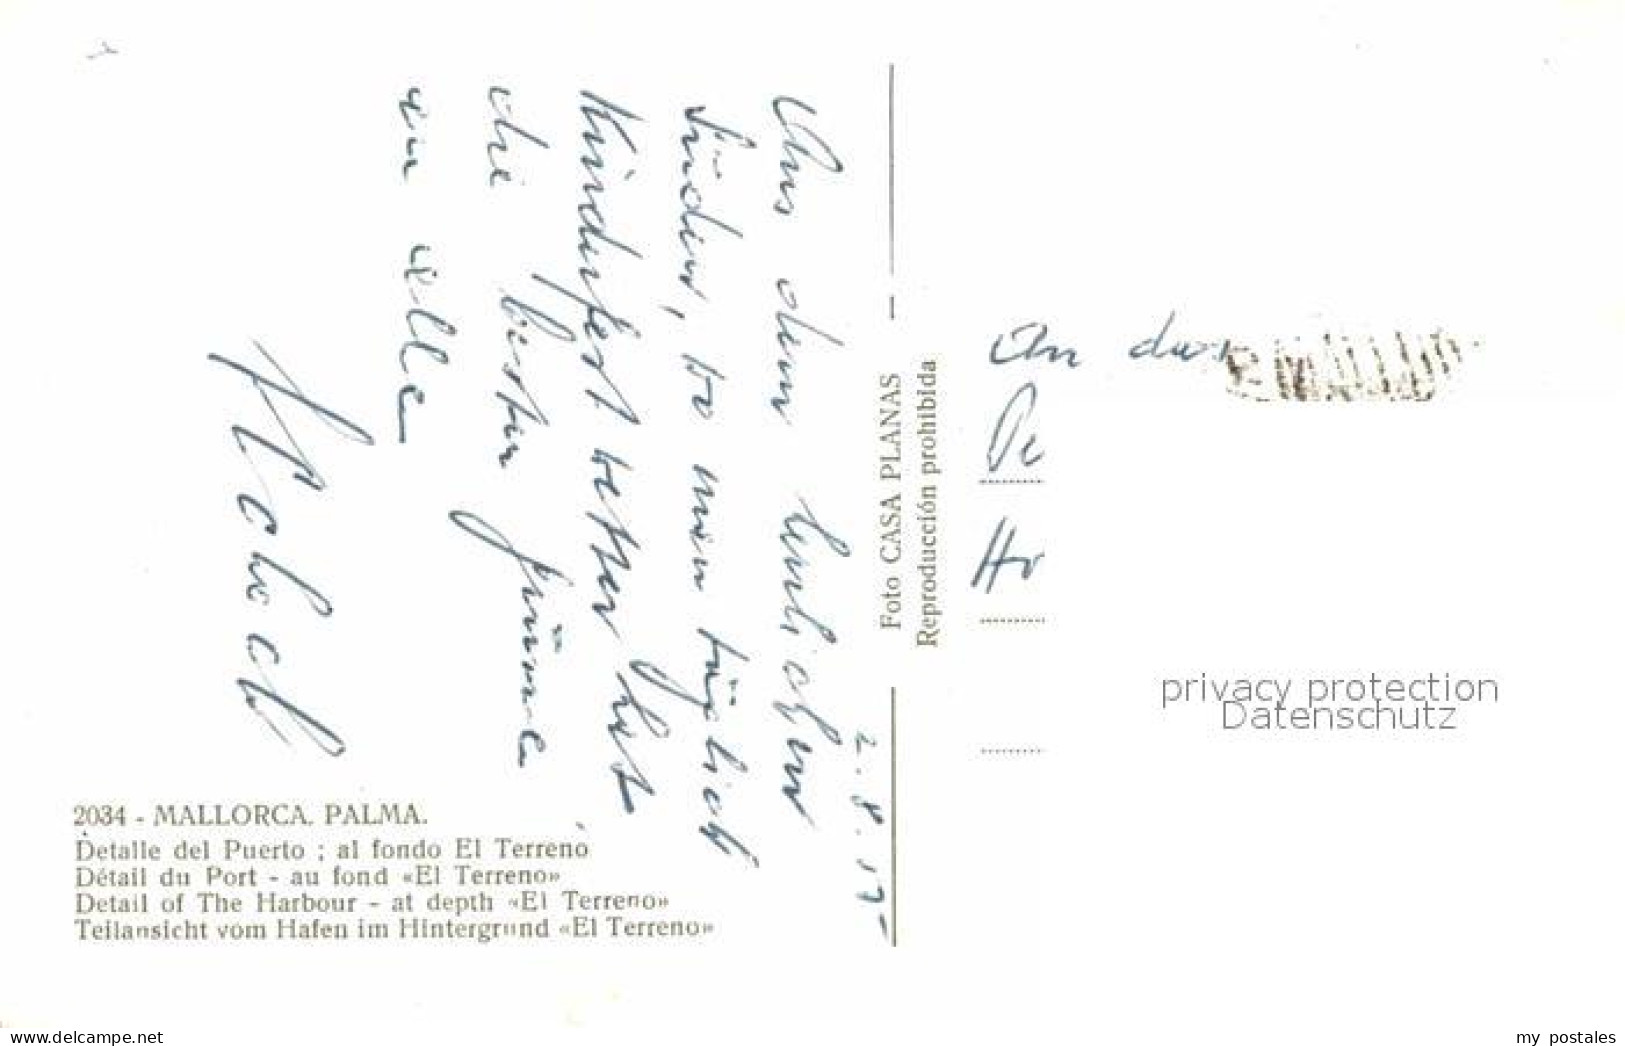 2.8.
Aus dem herrlichen
Süden, wo man täglich
Kinderfest wetter hat,
die besten Grüsse
an alle
Foto CASA PLANAS
Reproducción prohibida
An das
2034 - MALLORCA. PALMA.
Detalle del Puerto ; al fondo El Terreno
Détail du Port - au fond «El Terreno»
Detail of The Harbour - at depth «El Terreno»
Teilansicht vom Hafen im Hintergrund «El Terreno»
privacy protection
Datenschutz
www.delcampe.net
my_postales